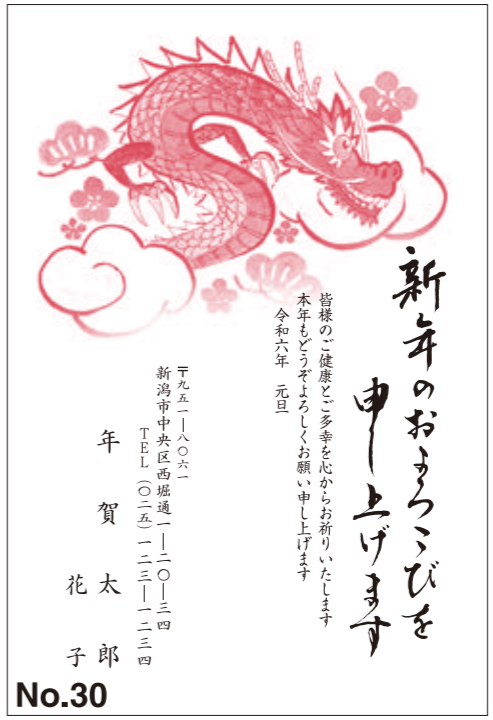 新年のおよろこびを
申し上げます
皆様のご健康とご多幸を心からお祈りいたします
本年もどうぞよろしくお願い申し上げます
令和六年 元旦
〒九五一―八〇六一
新潟市中央区西堀通一―二〇―三四
TEL(〇二五)一二三―一二三四
年賀太郎
花子
No.30